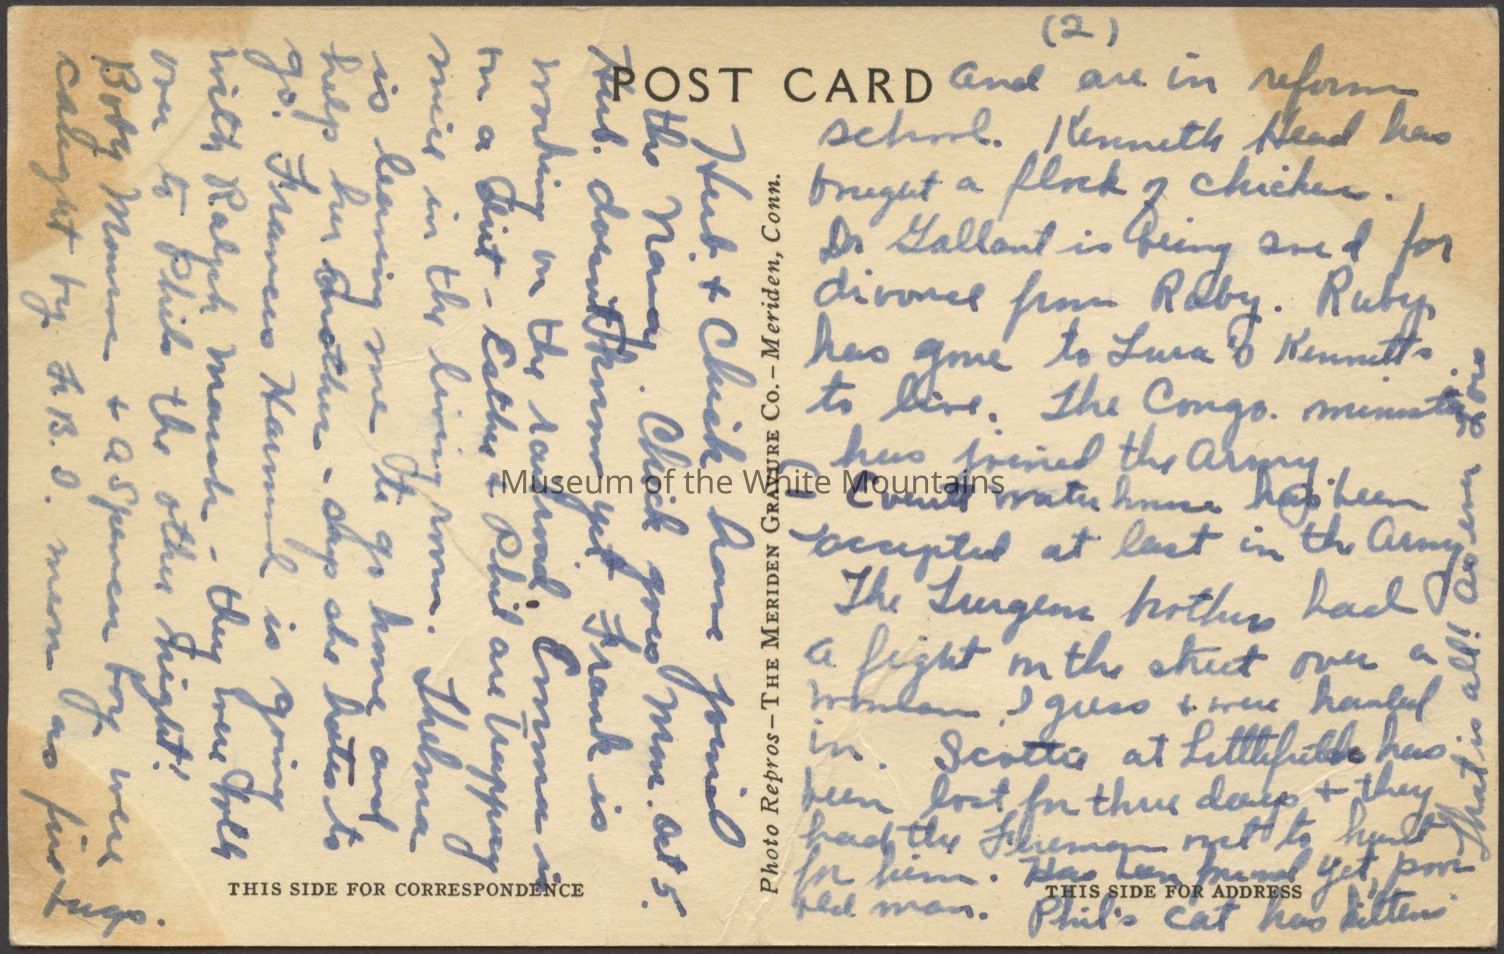 (2)
POST CARD
Hub. & Chick have joined
the Navy. Chick goes Mon. at 5.
Hub. doesn't know yet. Frank is
working on the railroad. Emma is
in a Diet - Esther & Phil are trapping
mice in the living room. Thelma
is leaving me to go home and
help her mother - says she hates to
go. Frances Hammond is going
with Ralph Marsh - they were
over to Phils the other night!
Bobby Moore & a Spencer boy were
caught by F.B.I. men as
and are in reform
school. Kenneth Head has
bought a flock of chicken.
Dr Gallant is being sued for
divorce from Ruby. Ruby
has gone to Lura & Kenneth's
to live. The Congo. minister
has joined the Army
Everett Waterhouse has been
accepted at last in the Army
The brothers had
a fight on the street over a
woman, I guess & were hauled
in. Scottie at Littlefields has
been lost for three days & they
had the Firemen out to hunt
for him. Has been found yet, poor
old man. Phil's cat has kittens
That is all! As ever
Photo Repros–The Meriden Gravure Co.–Meriden, Conn.
THIS SIDE FOR CORRESPONDENCE
THIS SIDE FOR ADDRESS
Museum of the White Mountains